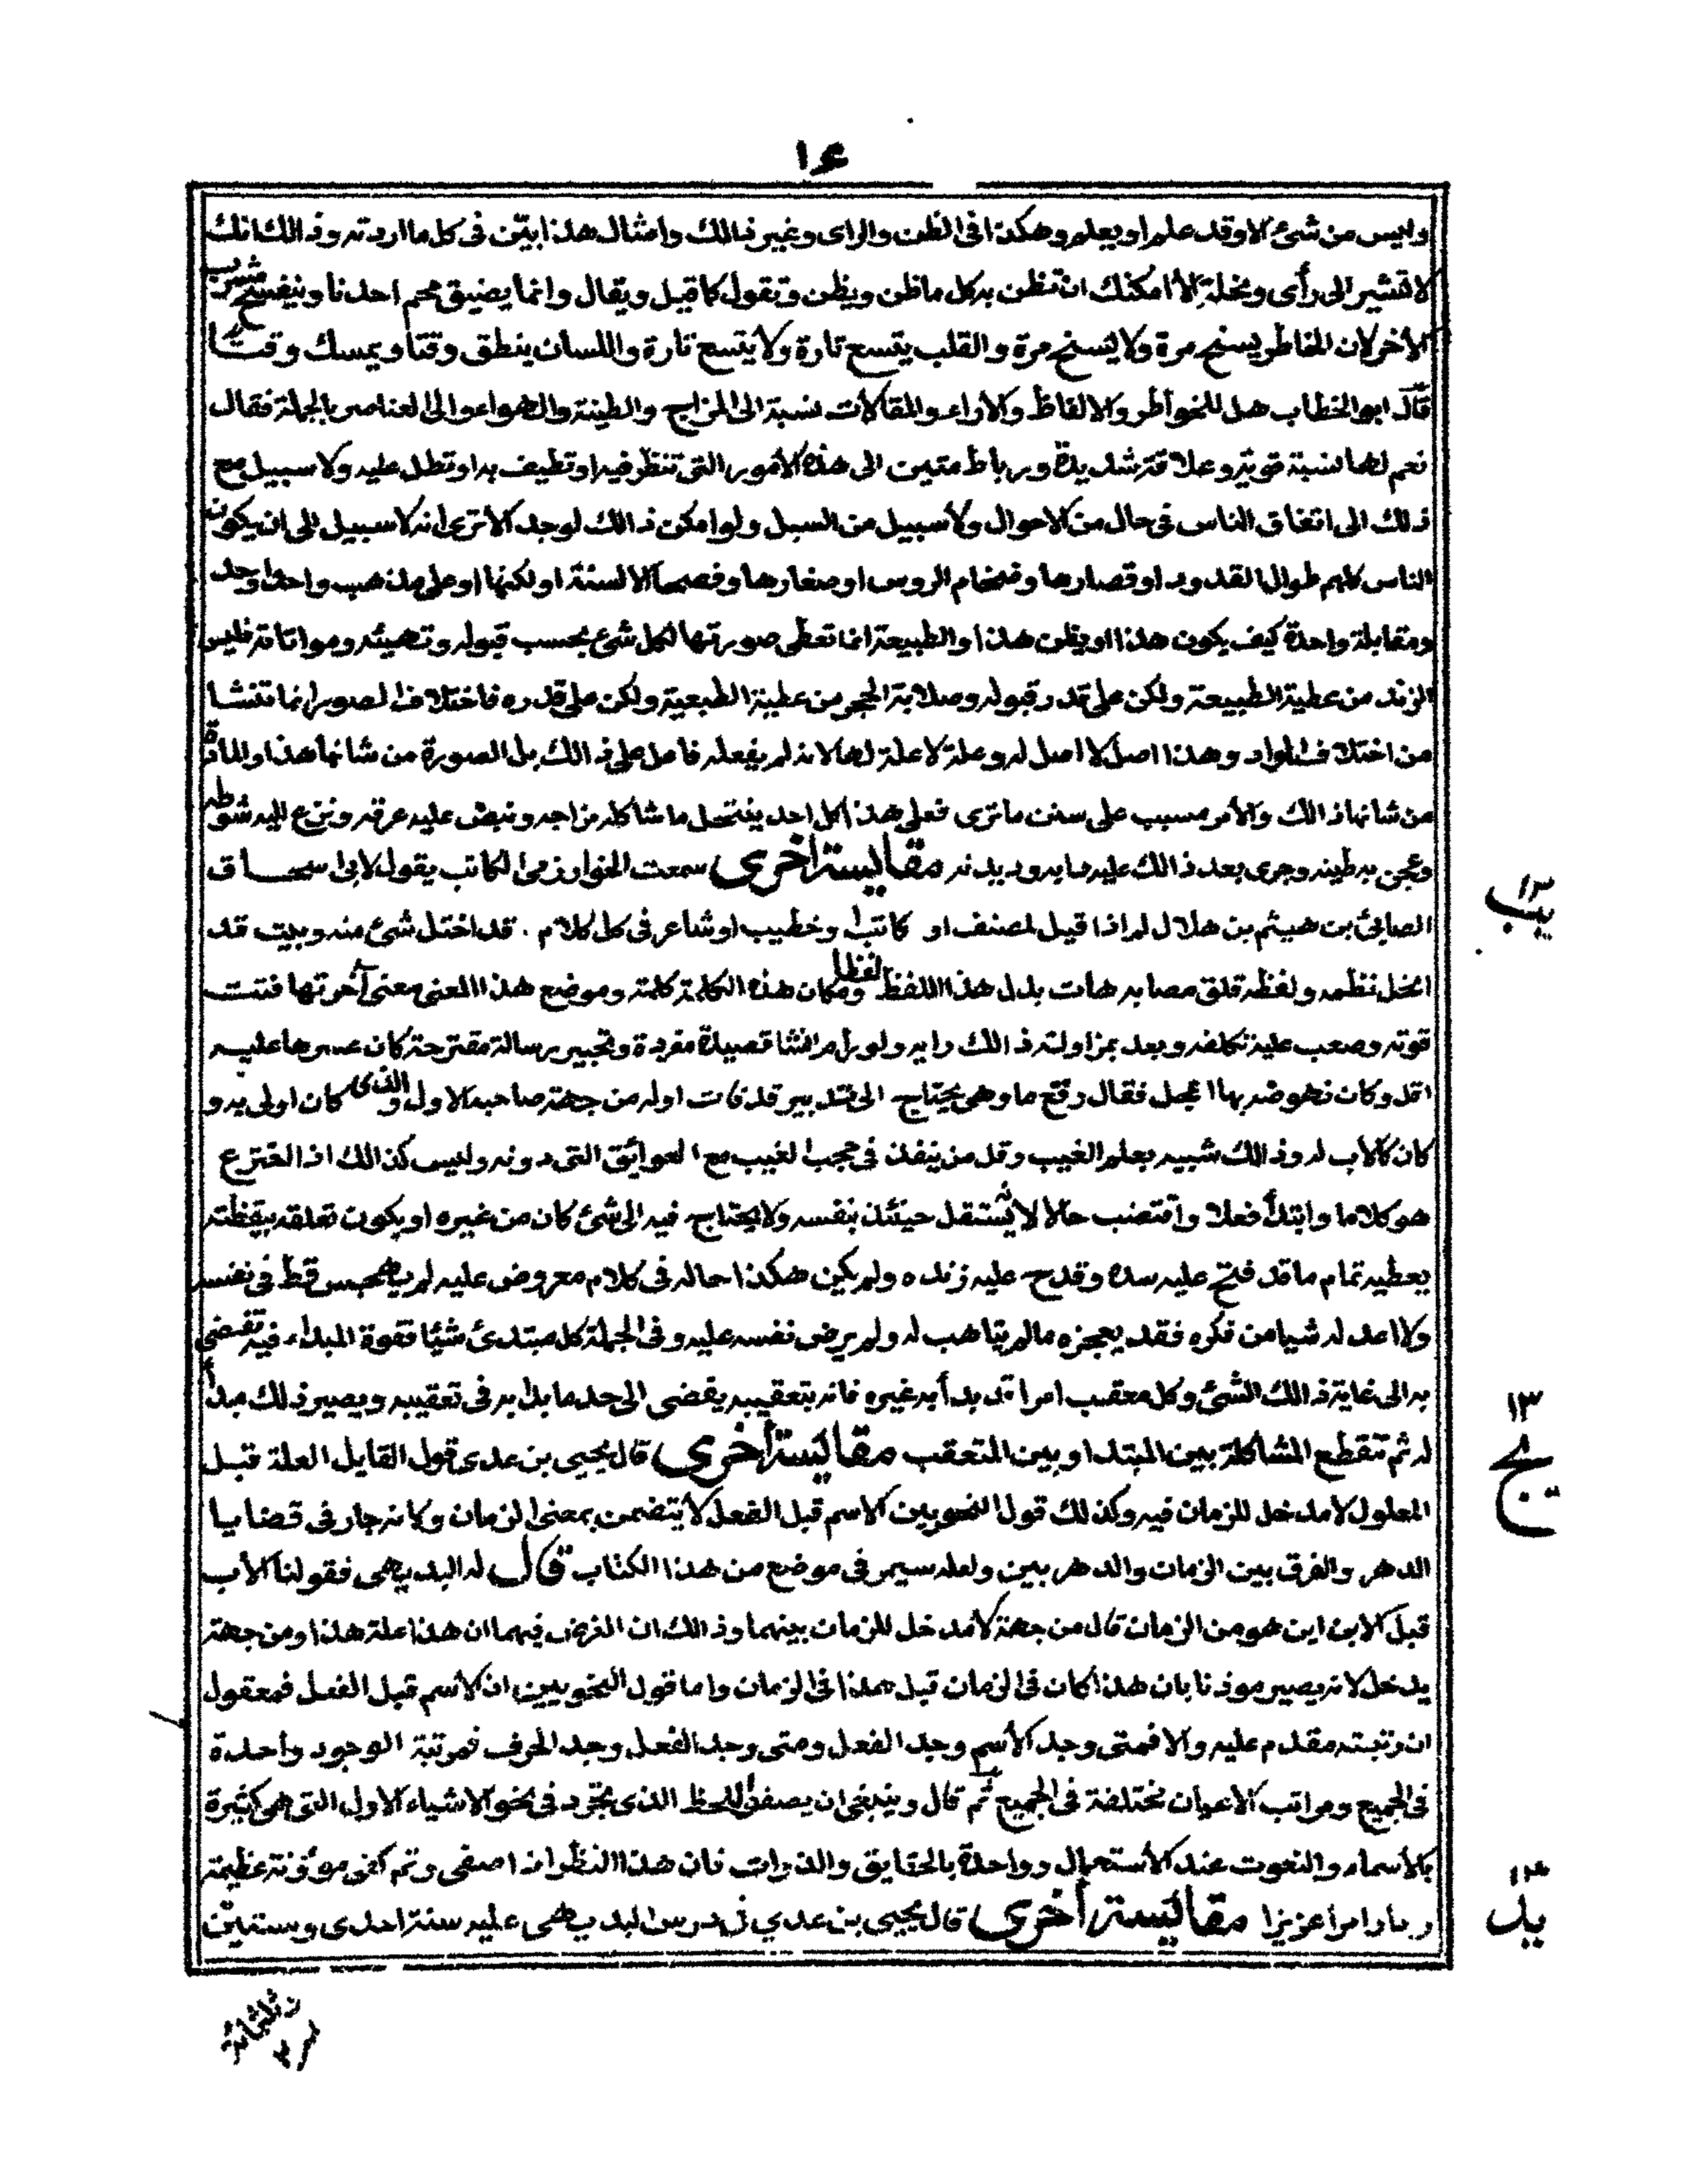 ١٤
وليس من شئ الاوقد علم او يعلم وهكذا فى الظن والراى وغير ذالك وامثال هذا بيّن فى كل ما اردته وذالك انك
لا تشير الى رأى ونحلة الا امكنك ان تظن به كل ما ظن ويظن وتقول كما قيل ويقال وانما يضيق محم احدنا وينفسح
الاخر لان الخاطر يسنح مرة ولا يسنح مرة والقلب يتسع تارة ولا يتسع تارة واللسان ينطق وقتا ويمسك وقتا
قال ابو الخطاب هل للخواطر والالفاظ والاراء والمقالات نسبة الى المزاج والطينة والهواء والى العناصر بالجملة فقال
نعم لها نسبة قوية وعلاقة شديدة ورباط متين الى هذه الامور التى تنظر فيه او تطيف به او تطل عليه ولا سبيل مع
ذلك الى اتفاق الناس فى حال من الاحوال ولا سبيل من السبل ولو امكن ذالك لوجد الا ترى انه لا سبيل الى ان يكون
الناس كلهم طوال القدود او قصارها وضخام الروس او صغارها وفصحاء الالسنة او لكنها او على مذهب واحد واحد
ومقابلة واحدة كيف يكون هذا او يظن هذا والطبيعة انما تعطى صورتها لكل شئ بحسب قبوله وتهيئه ومواتاته فليس
الزند من عطية الطبيعة ولكن على قدر قبوله وصلابة الحجر من عطية الطبعية ولكن على قدره فاختلاف الصور انما تنشا
من اختلاف المواد وهذا اصل لا اصل له وعلة لا علة لها لانه لم يفعله فاعل على ذالك بل الصورة من شانها هذا والمادة
من شانها ذالك والامر مسبب على سنن ما ترى فعلى هذا كل احد ينتحل ما شاكله مزاجه ونبض عليه عرقه ونزع اليه شوطه
وعجن به طينه وجرى بعد ذالك عليه دابه وديدنه مقايسة اخرى سمعت الخوارزمى الكاتب يقول لابى اسحاق
الصابئ بن هيثم بن هلال لم اذا قيل لمصنف او كاتب او خطيب او شاعر فى كل كلام . قد اختل شئ منه وبيت قد
انحل نظمه ولفظه قلق مصابه هات بدل هذا اللفظ لفظا ومكان هذه الكلمة كلمة وموضع هذا المعنى معنى آخر تهافتت
قوته وصعب عليه تكلفه وبعد بمزاولة ذالك رايه ولو رام انشا قصيدة مفردة وتحبير رسالة مقترحة كان عسرها عليه
اقل وكان نهوضه بها اعجل فقال رقع ما وهى يحتاج الى تدبير قد فات اوله من جهة صاحبه الاول والذى كان اولى به و
كان كالاب له وذالك شبيه بعلم الغيب وقل من ينفذ فى حجب الغيب مع العوائق التى دونه وليس كذالك اذا افترع
هو كلاما وابتدأ فعلا واقتضب حالا لا يستقل حينئذ بنفسه ولا يحتاج فيه الى شئ كان من غيره او يكون تعلقه بيقظته
يعطيه تمام ما قد فتح عليه سده وقدح عليه زنده ولم يكن هكذا حاله فى كلام معروض عليه لم يهجس قط فى نفسه
ولا اعد له شيا من فكره فقد يعجزه ما لم يتاهب له ولم يرض نفسه عليه وفى الجملة كل مبتدئ شيئا فقوة المبداء فيه تفضى
به الى غاية ذالك الشئ وكل معقب امرا قد بدأ به غيره فانه بتعقيبه يفضى الى حد ما بدا به فى تعقيبه ويصير ذلك مبدأ
له ثم تنقطع المشاكلة بين المبتدا وبين المتعقب مقايسة أخرى قال يحيى بن عدى قول القايل العلة قبل
المعلول لا مدخل للزمان فيه وكذلك قول النحويين الاسم قبل الفعل لا يتضمن بمعنى الزمان وكانه جار فى قضايا
الدهر والفرق بين الزمان والدهر بين ولعله سيمر فى موضع من هذا الكتاب قال له البديهى فقولنا الاب
قبل الابن اين هو من الزمان قال من جهة لا مدخل للزمان بينهما وذالك ان الغرض فيهما ان هذا علة هذا ومن جهة
يدخل لانه يصير موذنا بان هذا كان فى الزمان قبل هذا فى الزمان واما قول النحويين ان الاسم قبل الفعل فمعقول
ان رتبته مقدم عليه والا فمتى وجد الأسم وجد الفعل ومتى وجد الفعل وجد الحرف فمرتبة الوجود واحدة
فى الجميع ومراتب الاعيان مختلفة فى الجميع ثم قال وينبغى ان يصفى اللحظ الذى يجرد فى نحو الاشياء الاول التى هى كثيرة
بالأسماء والنعوت عند الأستعمال وواحدة بالحقايق والذوات فان هذا النظر اذا صفى وتم كفى موئونة عظيمة
مقايسة أخرى قال يحيى بن عدي فى درس البديهى عليه سنة احدى وستين
١٣
يب
١٣
يج
١٣
يد
وثلثمائة